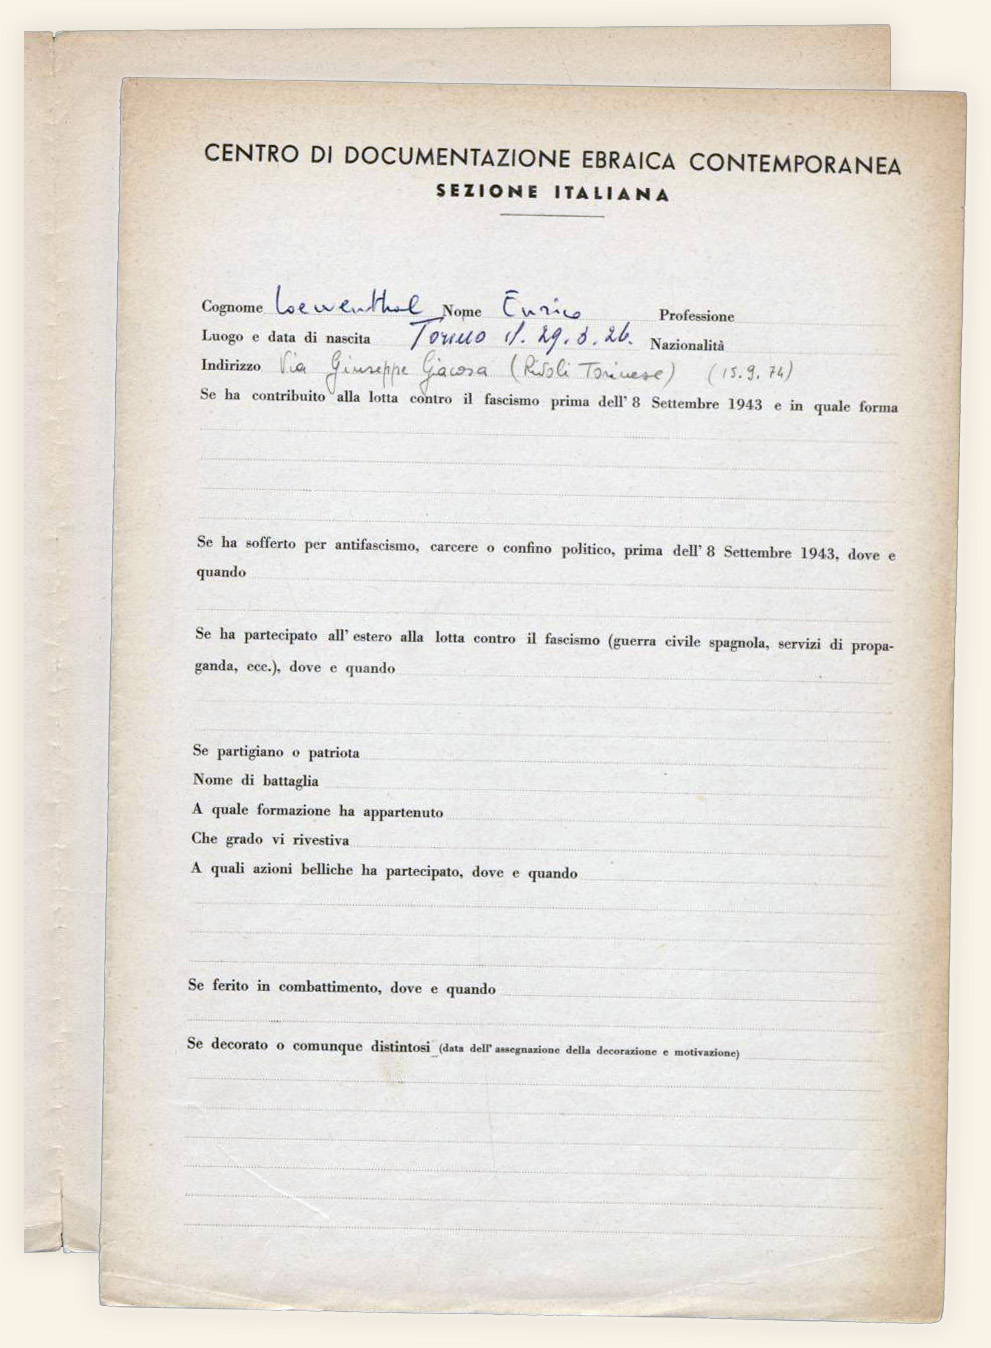 CENTRO DI DOCUMENTAZIONE EBRAICA CONTEMPORANEA
SEZIONE ITALIANA
Cognome Loewenthal Nome Enrico Professione
Luogo e data di nascita Torino il. 29.8.26. Nazionalità
Indirizzo Via Giuseppe Giacosa (Rivoli Torinese) (15.9.74)
Se ha contribuito alla lotta contro il fascismo prima dell' 8 Settembre 1943 e in quale forma
Se ha sofferto per antifascismo, carcere o confino politico, prima dell' 8 Settembre 1943, dove e
quando
Se ha partecipato all' estero alla lotta contro il fascismo (guerra civile spagnola, servizi di propa-
ganda, ecc.), dove e quando
Se partigiano o patriota
Nome di battaglia
A quale formazione ha appartenuto
Che grado vi rivestiva
A quali azioni belliche ha partecipato, dove e quando
Se ferito in combattimento, dove e quando
Se decorato o comunque distintosi (data dell' assegnazione della decorazione e motivazione)